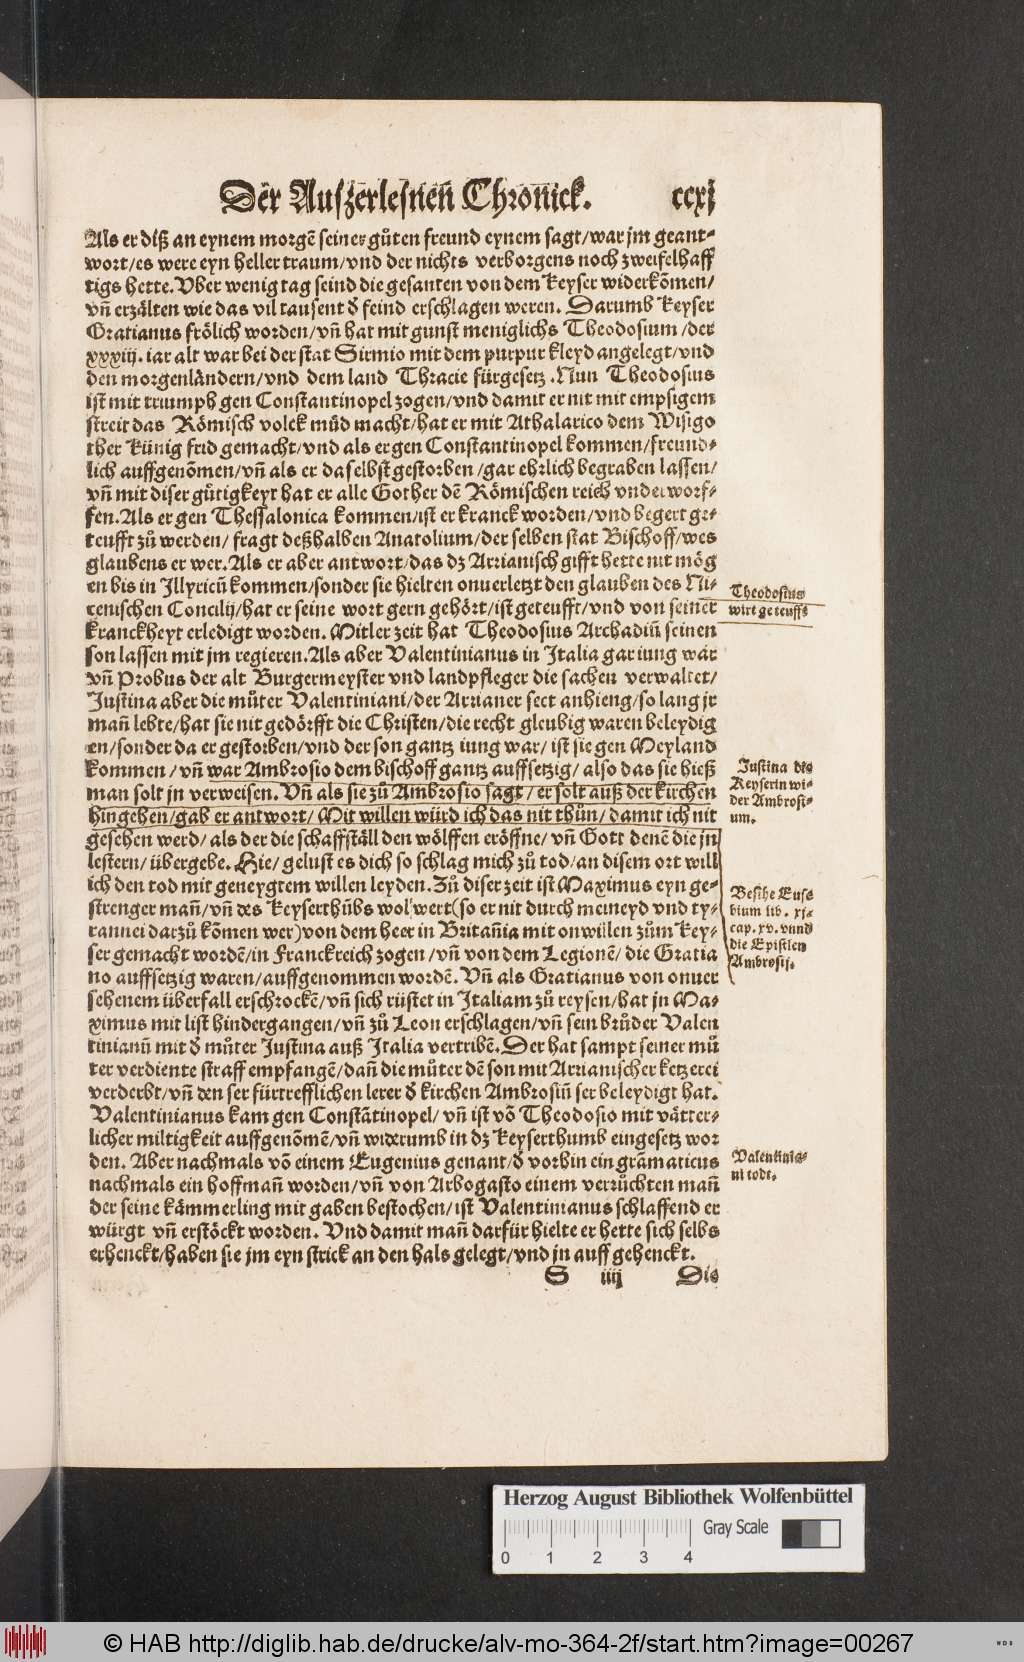 Der Auſzerlesnen̄ Chronick. ccxj
Als er diß an eynem morgē seines gůten freund eynem sagt/war jm geant⸗
wort/es were eyn heller traum/vnd der nichts verborgens noch zweifelhaff
tigs hette. Vber wenig tag seind die gesanten von dem Keyser widerkōmen/
vn̄ erzälten wie das vil tausent ð feind erschlagen weren. Darumb Keyser
Gratianus frölich worden/vn̄ hat mit gunst meniglichs Theodosium/der
xxxiij. iar alt war bei der stat Sirmio mit dem purpur kleyd angelegt/vnd
den morgenländern/vnd dem land Thracie fürgesetz. Nun Theodosius
ist mit triumph gen Constantinopel zogen/vnd damit er nit mit empsigem
streit das Römisch volck müd macht/hat er mit Athalarico dem Wisigo
ther Künig frid gemacht/vnd als er gen Constantinopel kommen/freund⸗
lich auffgenōmen/vn̄ als er daselbst gestorben/gar ehrlich begraben lassen/
vn̄ mit diser gůtigkeyt hat er alle Gother dē Römischen reich vnderworf⸗
fen. Als er gen Thessalonica kommen/ist er kranck worden/vnd begert ge⸗
teufft zů werden/ fragt deßhalben Anatolium/der selben stat Bischoff/wes
glaubens er wer. Als er aber antwort/das dz Arrianisch gifft hette nit mög
en bis in Illyricū kommen/sonder sie hielten onuerletzt den glauben des Ni⸗
cenischen Concilij/hat er seine wort gern gehört/ist geteufft/vnd von seiner
kranckheyt erledigt worden. Mitler zeit hat Theodosius Archadiū seinen
son lassen mit jm regieren. Als aber Valentinianus in Italia gar iung war
vn̄ Probus der alt Burgermeyster vnd landpfleger die sachen verwaltet/
Justina aber die můter Valentiniani/der Arrianer sect anhieng/so lang jr
man̄ lebte/hat sie nit gedörfft die Christen/die recht gleubig waren beleydig
en/sonder da er gestorben/vnd der son gantz iung war/ ist sie gen Meyland
kommen/ vn̄ war Ambrosio dem bischoff gantz auffsetzig/ also das sie hieß
man solt jn verweisen. Vn̄ als sie zů Ambrosio sagt/ er solt auß der kirchen
hingehen/gab er antwort/ Mit willen würd ich das nit thůn/ damit ich nit
gesehen werd/ als der die schaffställ den wölffen eröffne/ vn̄ Gott denē die jn
lestern/ übergebe. Hie/ gelust es dich so schlag mich zů tod/an disem ort will
ich den tod mit geneygtem willen leyden. Zů diser zeit ist Maximus eyn ge⸗
strenger man̄/vn̄ des Keyserthůbs wol wert(so er nit durch meineyd vnd ty⸗
rannei darzů kōmen wer)von dem heer in Britan̄ia mit onwillen zům Key⸗
ser gemacht wordē/in Franckreich zogen/vn̄ von dem Legionē/ die Gratia
no auffsetzig waren/auffgenommen wordē. Vn̄ als Gratianus von onuer
sehenem überfall erschrockē/vn̄ sich rüstet in Italiam zů reysen/hat jn Ma⸗
ximus mit list hindergangen/vn̄ zů Leon erschlagen/vn̄ sein brůder Valen
tinianū mit ð můter Justina auß Italia vertribē. Der hat sampt seiner mů
ter verdiente straff empfangē/dan̄ die můter dē son mit Arrianischer ketzerei
verderbt/vn̄ den ser fürtrefflichen lerer ð kirchen Ambrosiū ser beleydigt hat.
Valentinianus kam gen Constātinopel/ vn̄ ist vō Theodosio mit vätter⸗
licher miltigkeit auffgenōmē/vn̄ widerumb in dz keyserthumb eingesetz wor
den. Aber nachmals vō einem Eugenius genant/ð vorbin ein grāmaticus
nachmals ein hoffman̄ worden/vn̄ von Arbogasto einem verrůchten man̄
der seine kämmerling mit gaben bestochen/ist Valentinianus schlaffend er
würgt vn̄ erstöckt worden. Vnd damit man̄ darfür hielte er hette sich selbs
erhenckt/haben sie jm eyn strick an den hals gelegt/vnd jn auff gehenckt.
S iiij Die
Theodosius
wirt geteufft
Justina die
Keyserin wi⸗
der Ambrosi⸗
um.
Besihe Euse
bium lib. xj⸗
cap. xv. vnnd
die Epistlen
Ambrosij.
Valentinia⸗
ni todt.
Herzog August Bibliothek Wolfenbüttel
Gray Scale
0 1 2 3 4
© HAB http://diglib.hab.de/drucke/alv-mo-364-2f/start.htm?image=00267